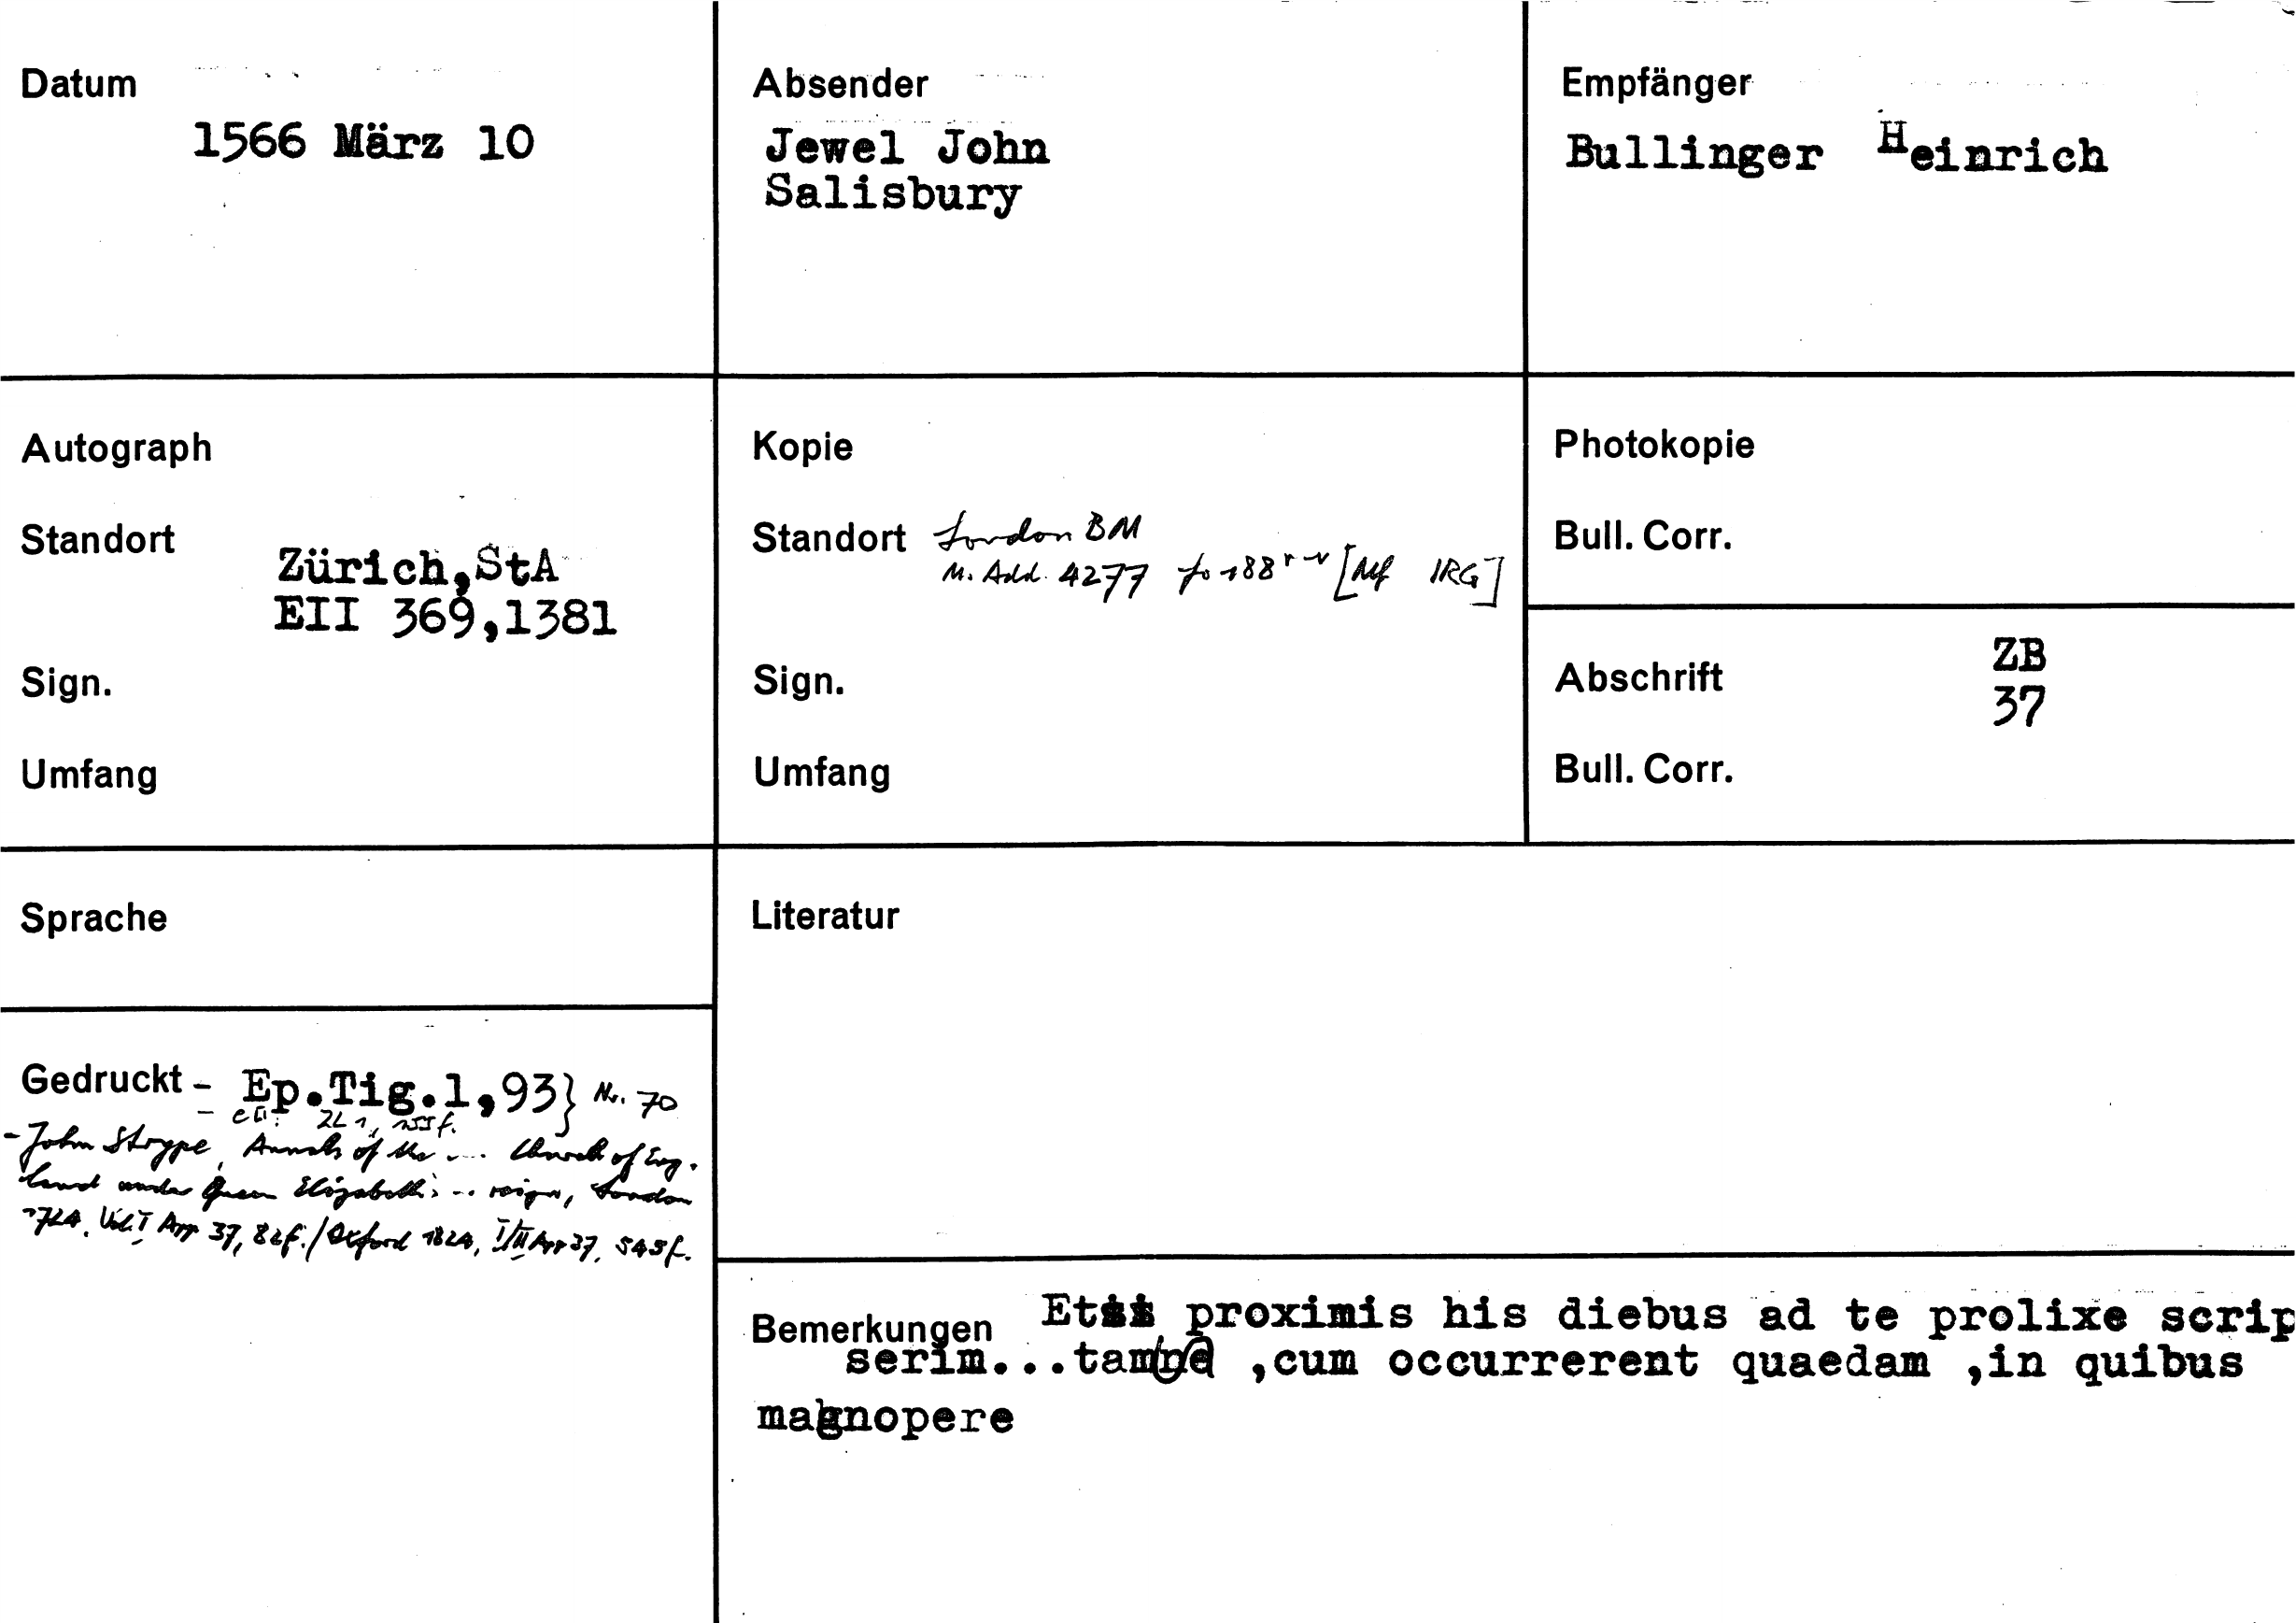 Datum
1566 März 10
Absender
Jewel John
Salisbury
Empfänger
Bullinger Heinrich
Autograph
Standort
Zürich,StA
EII 369,1381
Sign.
Umfang
Kopie
Standort London BM
M. Add. 4277 fo 188 r-v [Mf IRG]
Sign.
Umfang
Photokopie
Bull. Corr.
Abschrift ZB
37
Bull. Corr.
Sprache
Literatur
Gedruckt - Ep.Tig.1,93} Nr. 70
ZL 1, 155f.
- John Strype, Annals of the ... Church of Eng-
land under Queen Elizabeth's ... reign, London
Vol. I App 37, 82f. / Oxford 1824, I/II App 37, 545f.
Bemerkungen Etsi proximis his diebus ad te prolixe scrip
serim...tamen ,cum occurrerent quaedam ,in quibus
magnopere